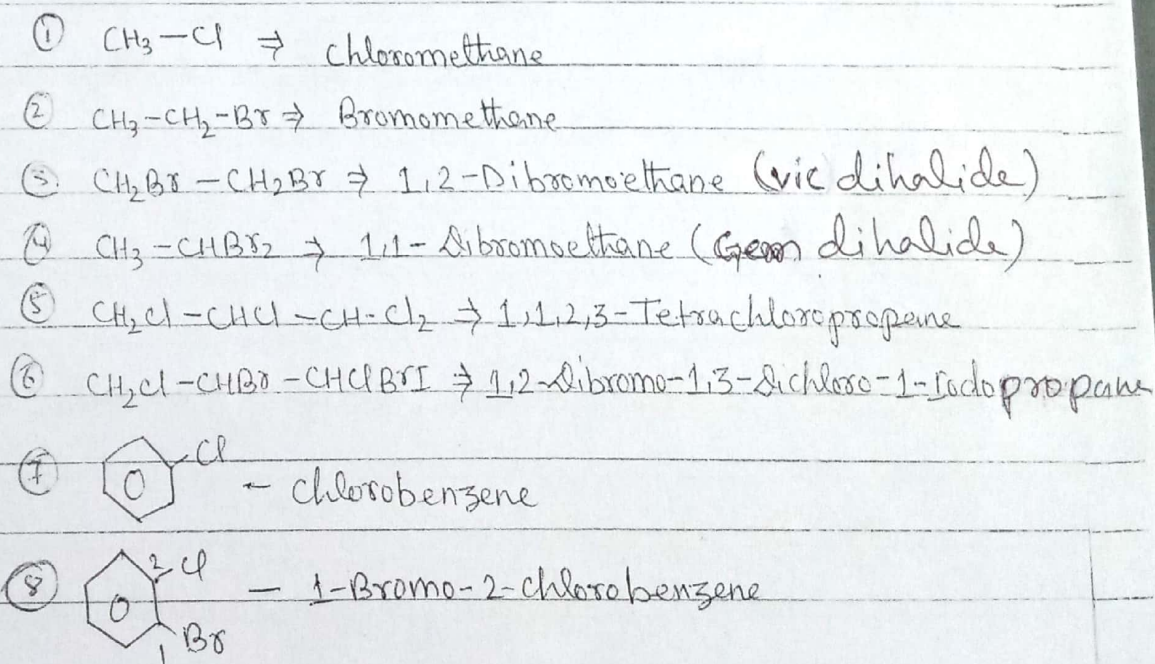 ① CH3-Cl ⇒ Chloromethane
② CH3-CH2-Br ⇒ Bromomethane
③ CH2Br-CH2Br ⇒ 1,2-Dibromoethane (vic dihalide)
④ CH3-CHBr2 ⇒ 1,1-Dibromoethane (Gem dihalide)
⑤ CH2Cl-CHCl-CH-Cl2 ⇒ 1,1,2,3-Tetrachloropropane
⑥ CH2Cl-CHBr-CHClBrI ⇒ 1,2-Dibromo-1,3-Dichloro-1-Iodopropane
⑦ Cl - Chlorobenzene
⑧ 2 Cl - 1-Bromo-2-Chlorobenzene
1 Br